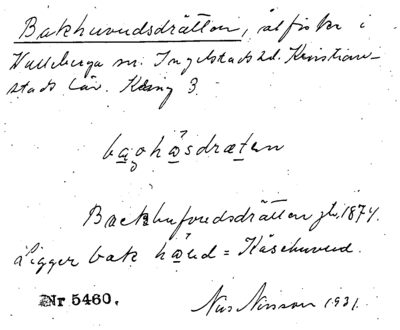 Bakhuvudsdrätten, ålfiske i
Valleberga sn. Ingelstads hd. Kristian-
stads län. Käring 3.
bagohåsdrætan
Backhufvudsdrätten jtr. 1874.
Ligger bak håud = Kåsehuvud.
Nr 5460.
Nils Nilsson 1931.